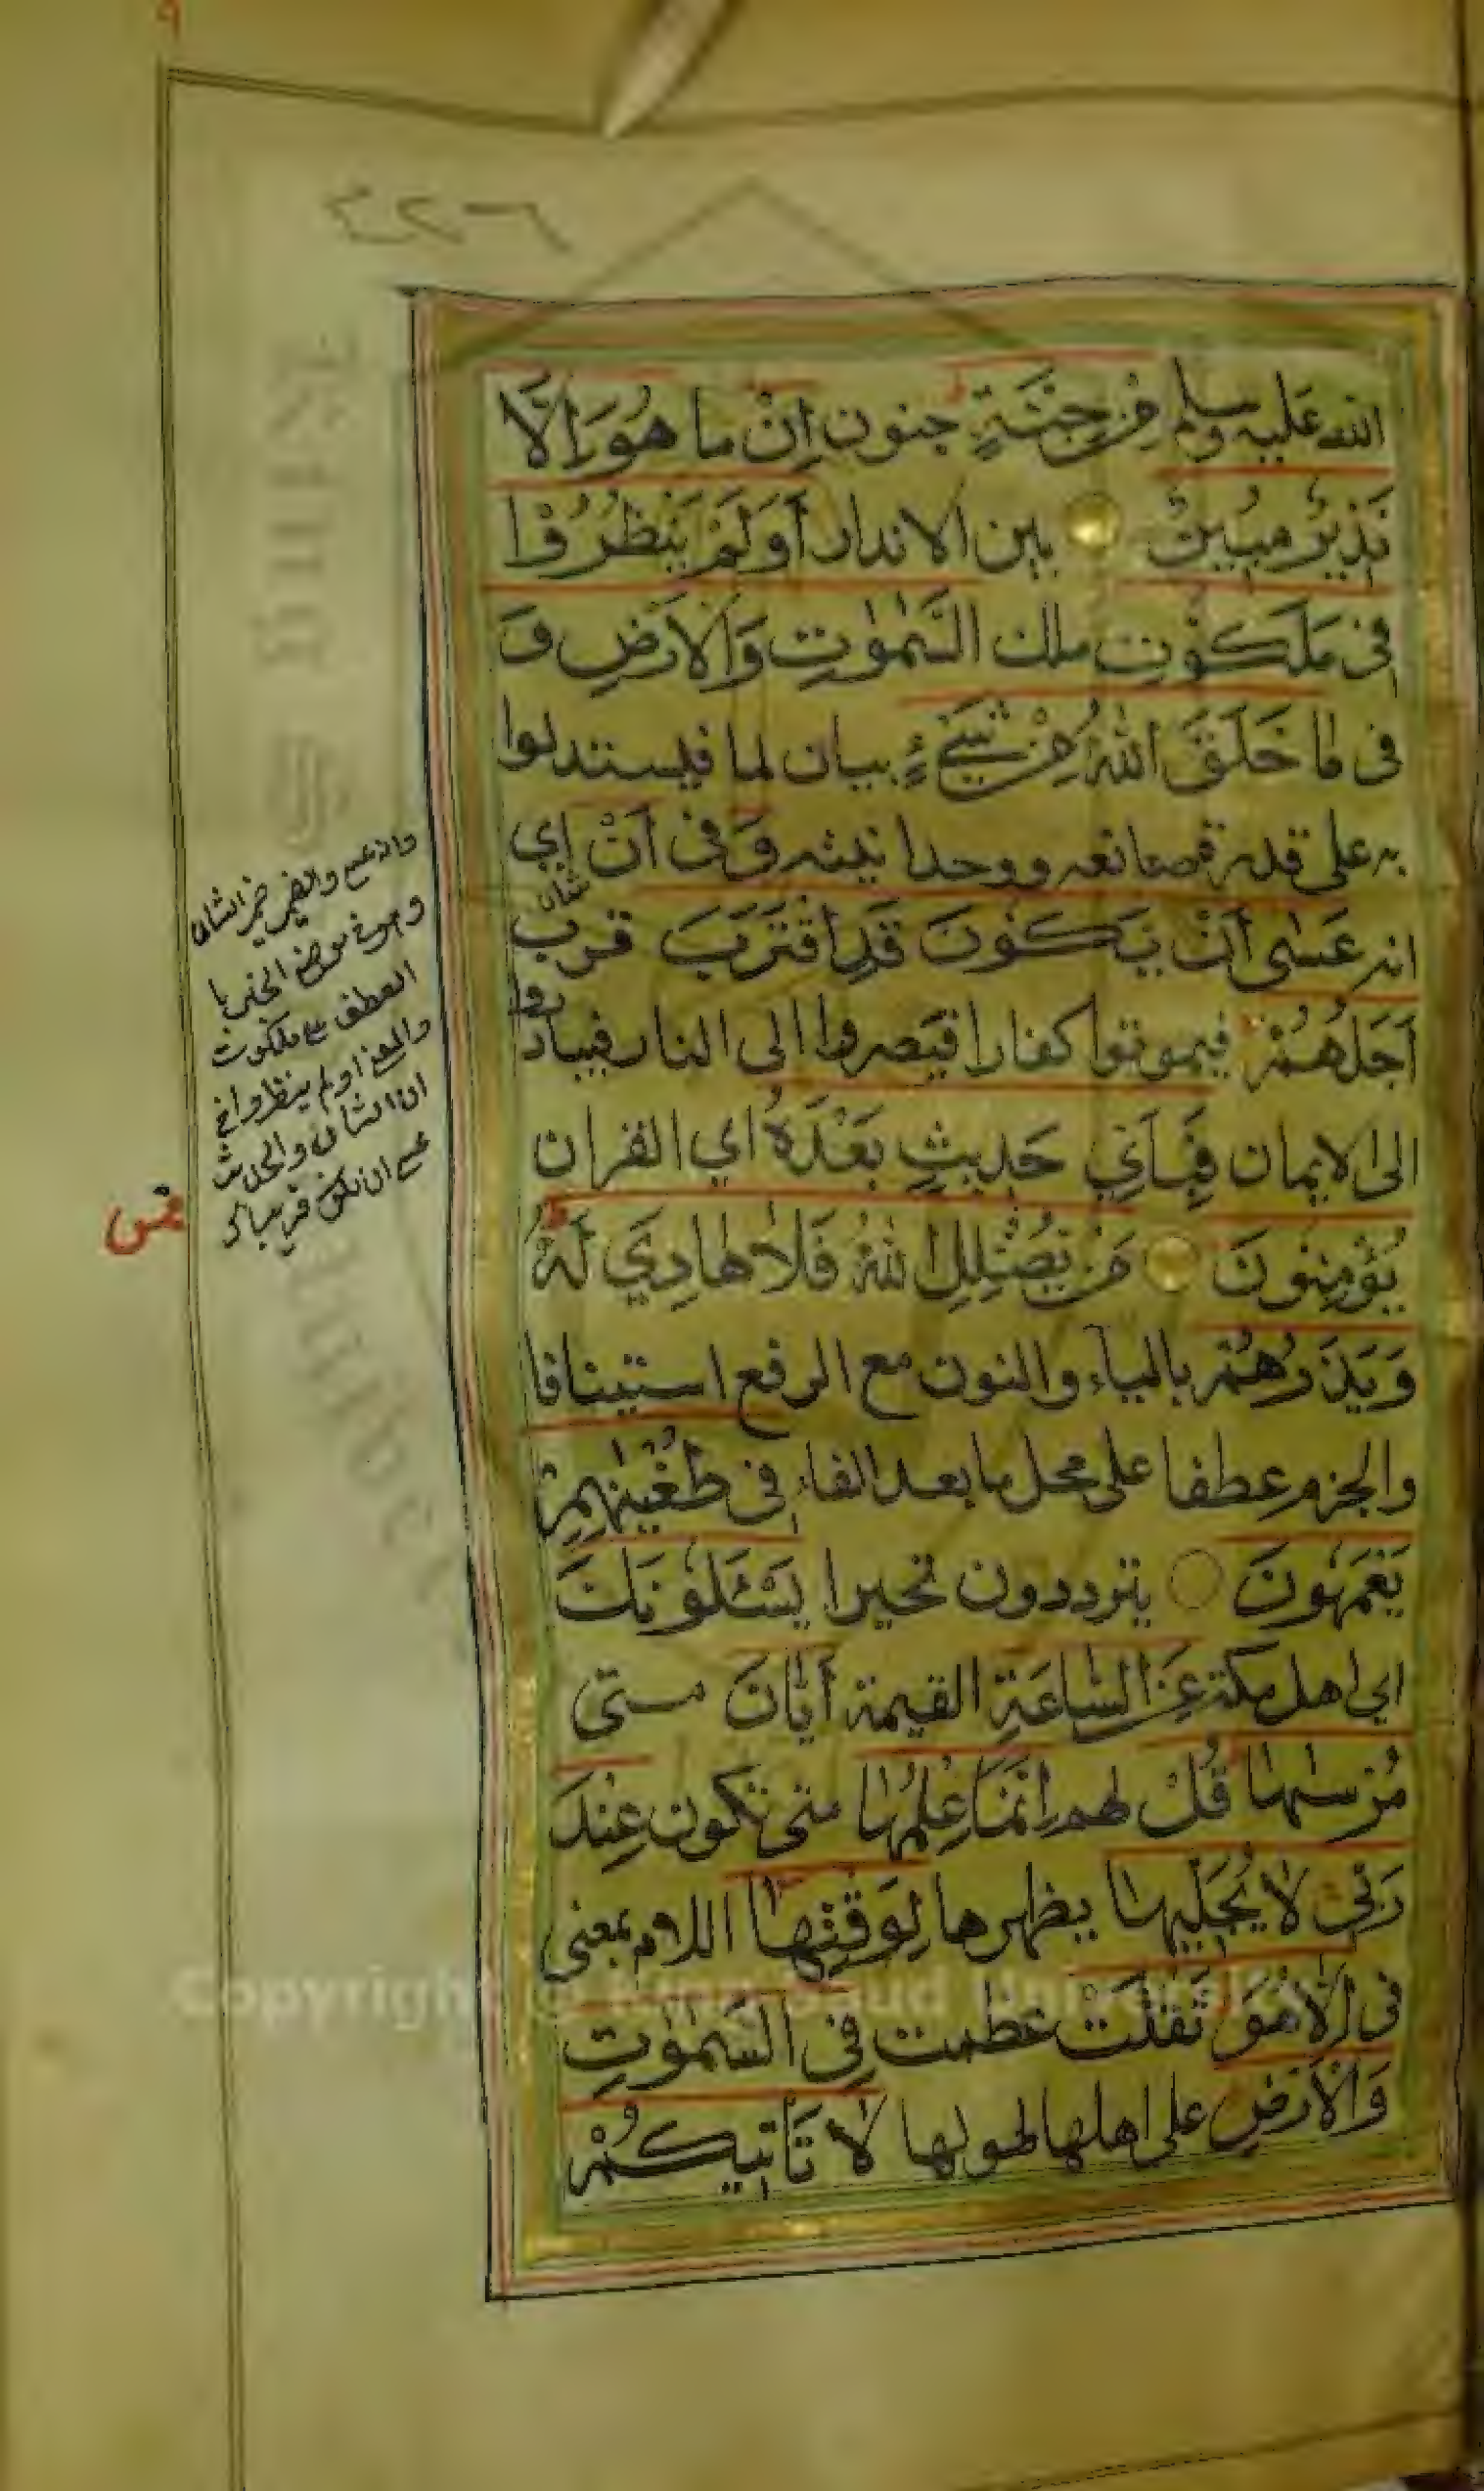 ٩
٤٢٦
الله عليه وسلم مِنْ جِنَّةٍ جنون اِنْ ما هُوَ اِلَّا
نَذِيْرٌ مُبِيْنٌ بين الانذار أَوَلَمْ يَنْظُرُوْا
فى مَلَكُوْتِ ملك السَّمٰوٰتِ وَالْاَرْضِ وَ
فى مٰا خَلَقَ اللّٰهُ مِنْ شَىْءٍ بيان لما فيستدلوا
به على قدرة صانعه ووحدانيته وَفى اَنْ اي
انه عَسٰى اَنْ يَكُوْنَ قَدِ اقْتَرَبَ قرب
شان
اَجَلُهُمْ فيموتوا كفارا فيصروا الى النار فيبادروا
الى الايمان فَبِاَيِّ حَدِيثٍ بَعْدَهُ اي القران
يُؤْمِنُونَ مَنْ يُضْلِلِ اللّٰهُ فَلَا هٰادِيَ لَهُ
وَيَذَرُهُمْ بالياء والنون مع الرفع استينافا
والجزم عطفا على محل ما بعد الفاء فى طُغْيٰنِهِمْ
يَعْمَهُونَ يترددون تحيرا يَسْئَلُوْنَكَ
اي اهل مكة عَنِ السّٰاعَةِ القيمة اَيّٰانَ متى
مُرْسٰىهٰا قُلْ لهم اِنَّمَا عِلْمُهٰا متى تكون عِنْدَ
رَبّى لٰا يُجَلِّيهٰا يظهرها لِوَقْتِهٰا اللام بمعنى
فى اِلّٰا هُوَ ثَقُلَتْ عظمت فِى السَّمٰوٰتِ
وَالْاَرْضِ على اهلها لهولها لٰا تَأْتِيكُمْ
وان عسى والضمير ضمير الشان
وهو فى موضع الجر با
العطف على ملكوت
والمعنى اولم ينظروا فى
ان الشان والحديث
عسى ان يكون
Copyright © King Saud University